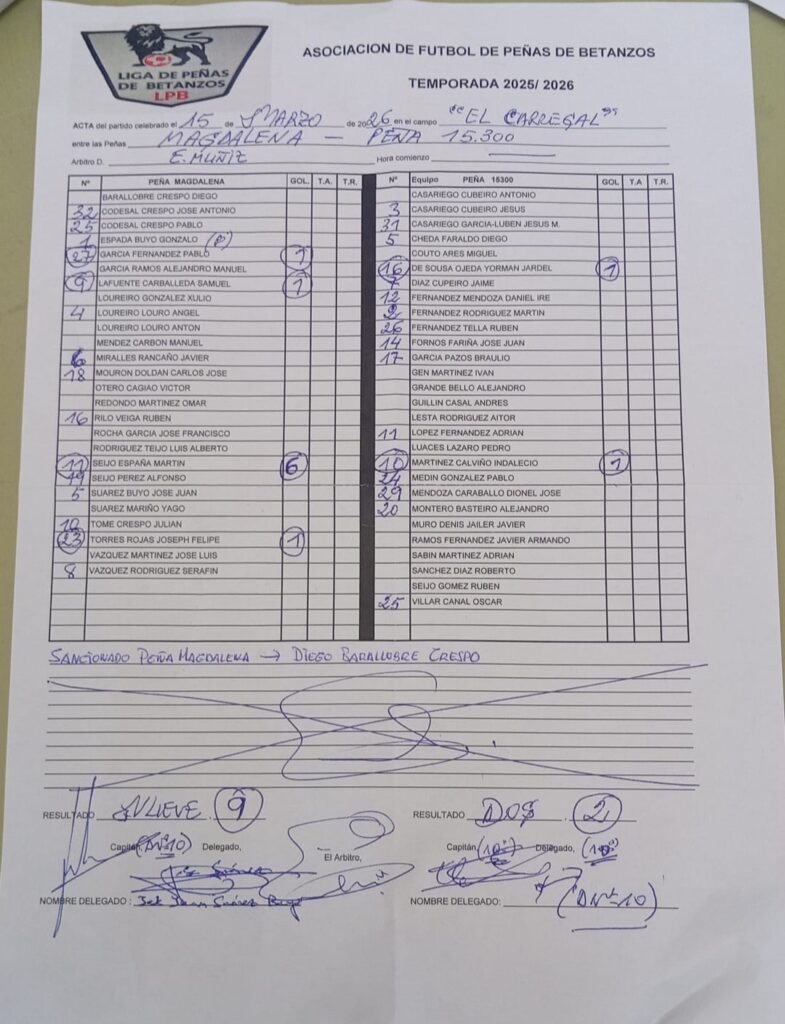 LIGA DE PEÑAS
DE BETANZOS
LPB
ASOCIACION DE FUTBOL DE PEÑAS DE BETANZOS
TEMPORADA 2025/ 2026
ACTA del partido celebrado el 15 de MARZO de 2026 en el campo "EL CARREGAL"
entre las Peñas MAGDALENA — PEÑA 15.300
Arbitro D. E. MUÑIZ Hora comienzo —
Nº PEÑA MAGDALENA GOL. T.A. T.R. Nº Equipo PEÑA 15300 GOL T.A T.R.
BARALLOBRE CRESPO DIEGO CASARIEGO CUBEIRO ANTONIO
32 CODESAL CRESPO JOSE ANTONIO 3 CASARIEGO CUBEIRO JESUS
25 CODESAL CRESPO PABLO 31 CASARIEGO GARCIA-LUBEN JESUS M.
1 ESPADA BUYO GONZALO (P) 5 CHEDA FARALDO DIEGO
27 GARCIA FERNANDEZ PABLO 1 COUTO ARES MIGUEL
GARCIA RAMOS ALEJANDRO MANUEL 16 DE SOUSA OJEDA YORMAN JARDEL 1
9 LAFUENTE CARBALLEDA SAMUEL 1 7 DIAZ CUPEIRO JAIME
LOUREIRO GONZALEZ XULIO 12 FERNANDEZ MENDOZA DANIEL IRE
4 LOUREIRO LOURO ANGEL 2 FERNANDEZ RODRIGUEZ MARTIN
LOUREIRO LOURO ANTON 26 FERNANDEZ TELLA RUBEN
MENDEZ CARBON MANUEL 14 FORNOS FARIÑA JOSE JUAN
6 MIRALLES RANCAÑO JAVIER 17 GARCIA PAZOS BRAULIO
18 MOURON DOLDAN CARLOS JOSE GEN MARTINEZ IVAN
OTERO CAGIAO VICTOR GRANDE BELLO ALEJANDRO
REDONDO MARTINEZ OMAR GUILLIN CASAL ANDRES
16 RILO VEIGA RUBEN LESTA RODRIGUEZ AITOR
ROCHA GARCIA JOSE FRANCISCO 11 LOPEZ FERNANDEZ ADRIAN
RODRIGUEZ TEIJO LUIS ALBERTO LUACES LAZARO PEDRO
11 SEIJO ESPAÑA MARTIN 6 10 MARTINEZ CALVIÑO INDALECIO 1
19 SEIJO PEREZ ALFONSO 24 MEDIN GONZALEZ PABLO
5 SUAREZ BUYO JOSE JUAN 29 MENDOZA CARABALLO DIONEL JOSE
SUAREZ MARIÑO YAGO 20 MONTERO BASTEIRO ALEJANDRO
10 TOME CRESPO JULIAN MURO DENIS JAILER JAVIER
23 TORRES ROJAS JOSEPH FELIPE 1 RAMOS FERNANDEZ JAVIER ARMANDO
VAZQUEZ MARTINEZ JOSE LUIS SABIN MARTINEZ ADRIAN
8 VAZQUEZ RODRIGUEZ SERAFIN SANCHEZ DIAZ ROBERTO
SEIJO GOMEZ RUBEN
25 VILLAR CANAL OSCAR
SANCIONADO PEÑA MAGDALENA → DIEGO BARALLOBRE CRESPO
RESULTADO NUEVE 9 RESULTADO DOS 2
Capitán (DNº10) Delegado, El Arbitro, Capitán Delegado,
NOMBRE DELEGADO : José Juan Suárez Buyo NOMBRE DELEGADO: (DNº 10)